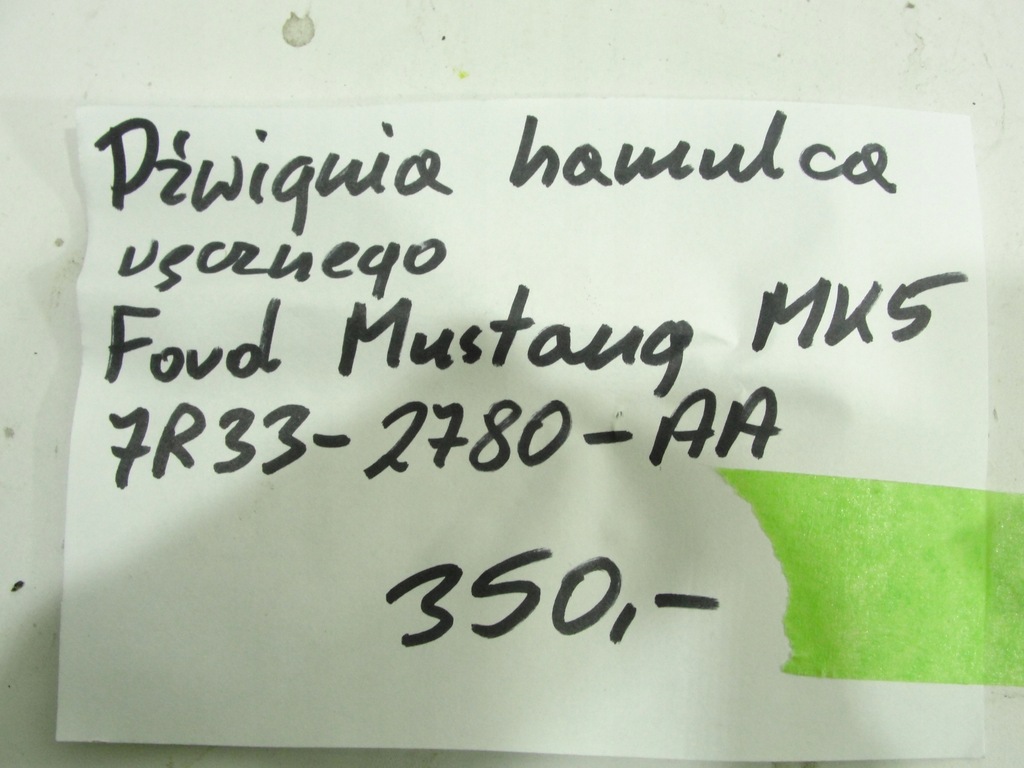 Dźwignia hamulca
ręcznego
Ford Mustang MK5
7R33-2780-AA
350,-